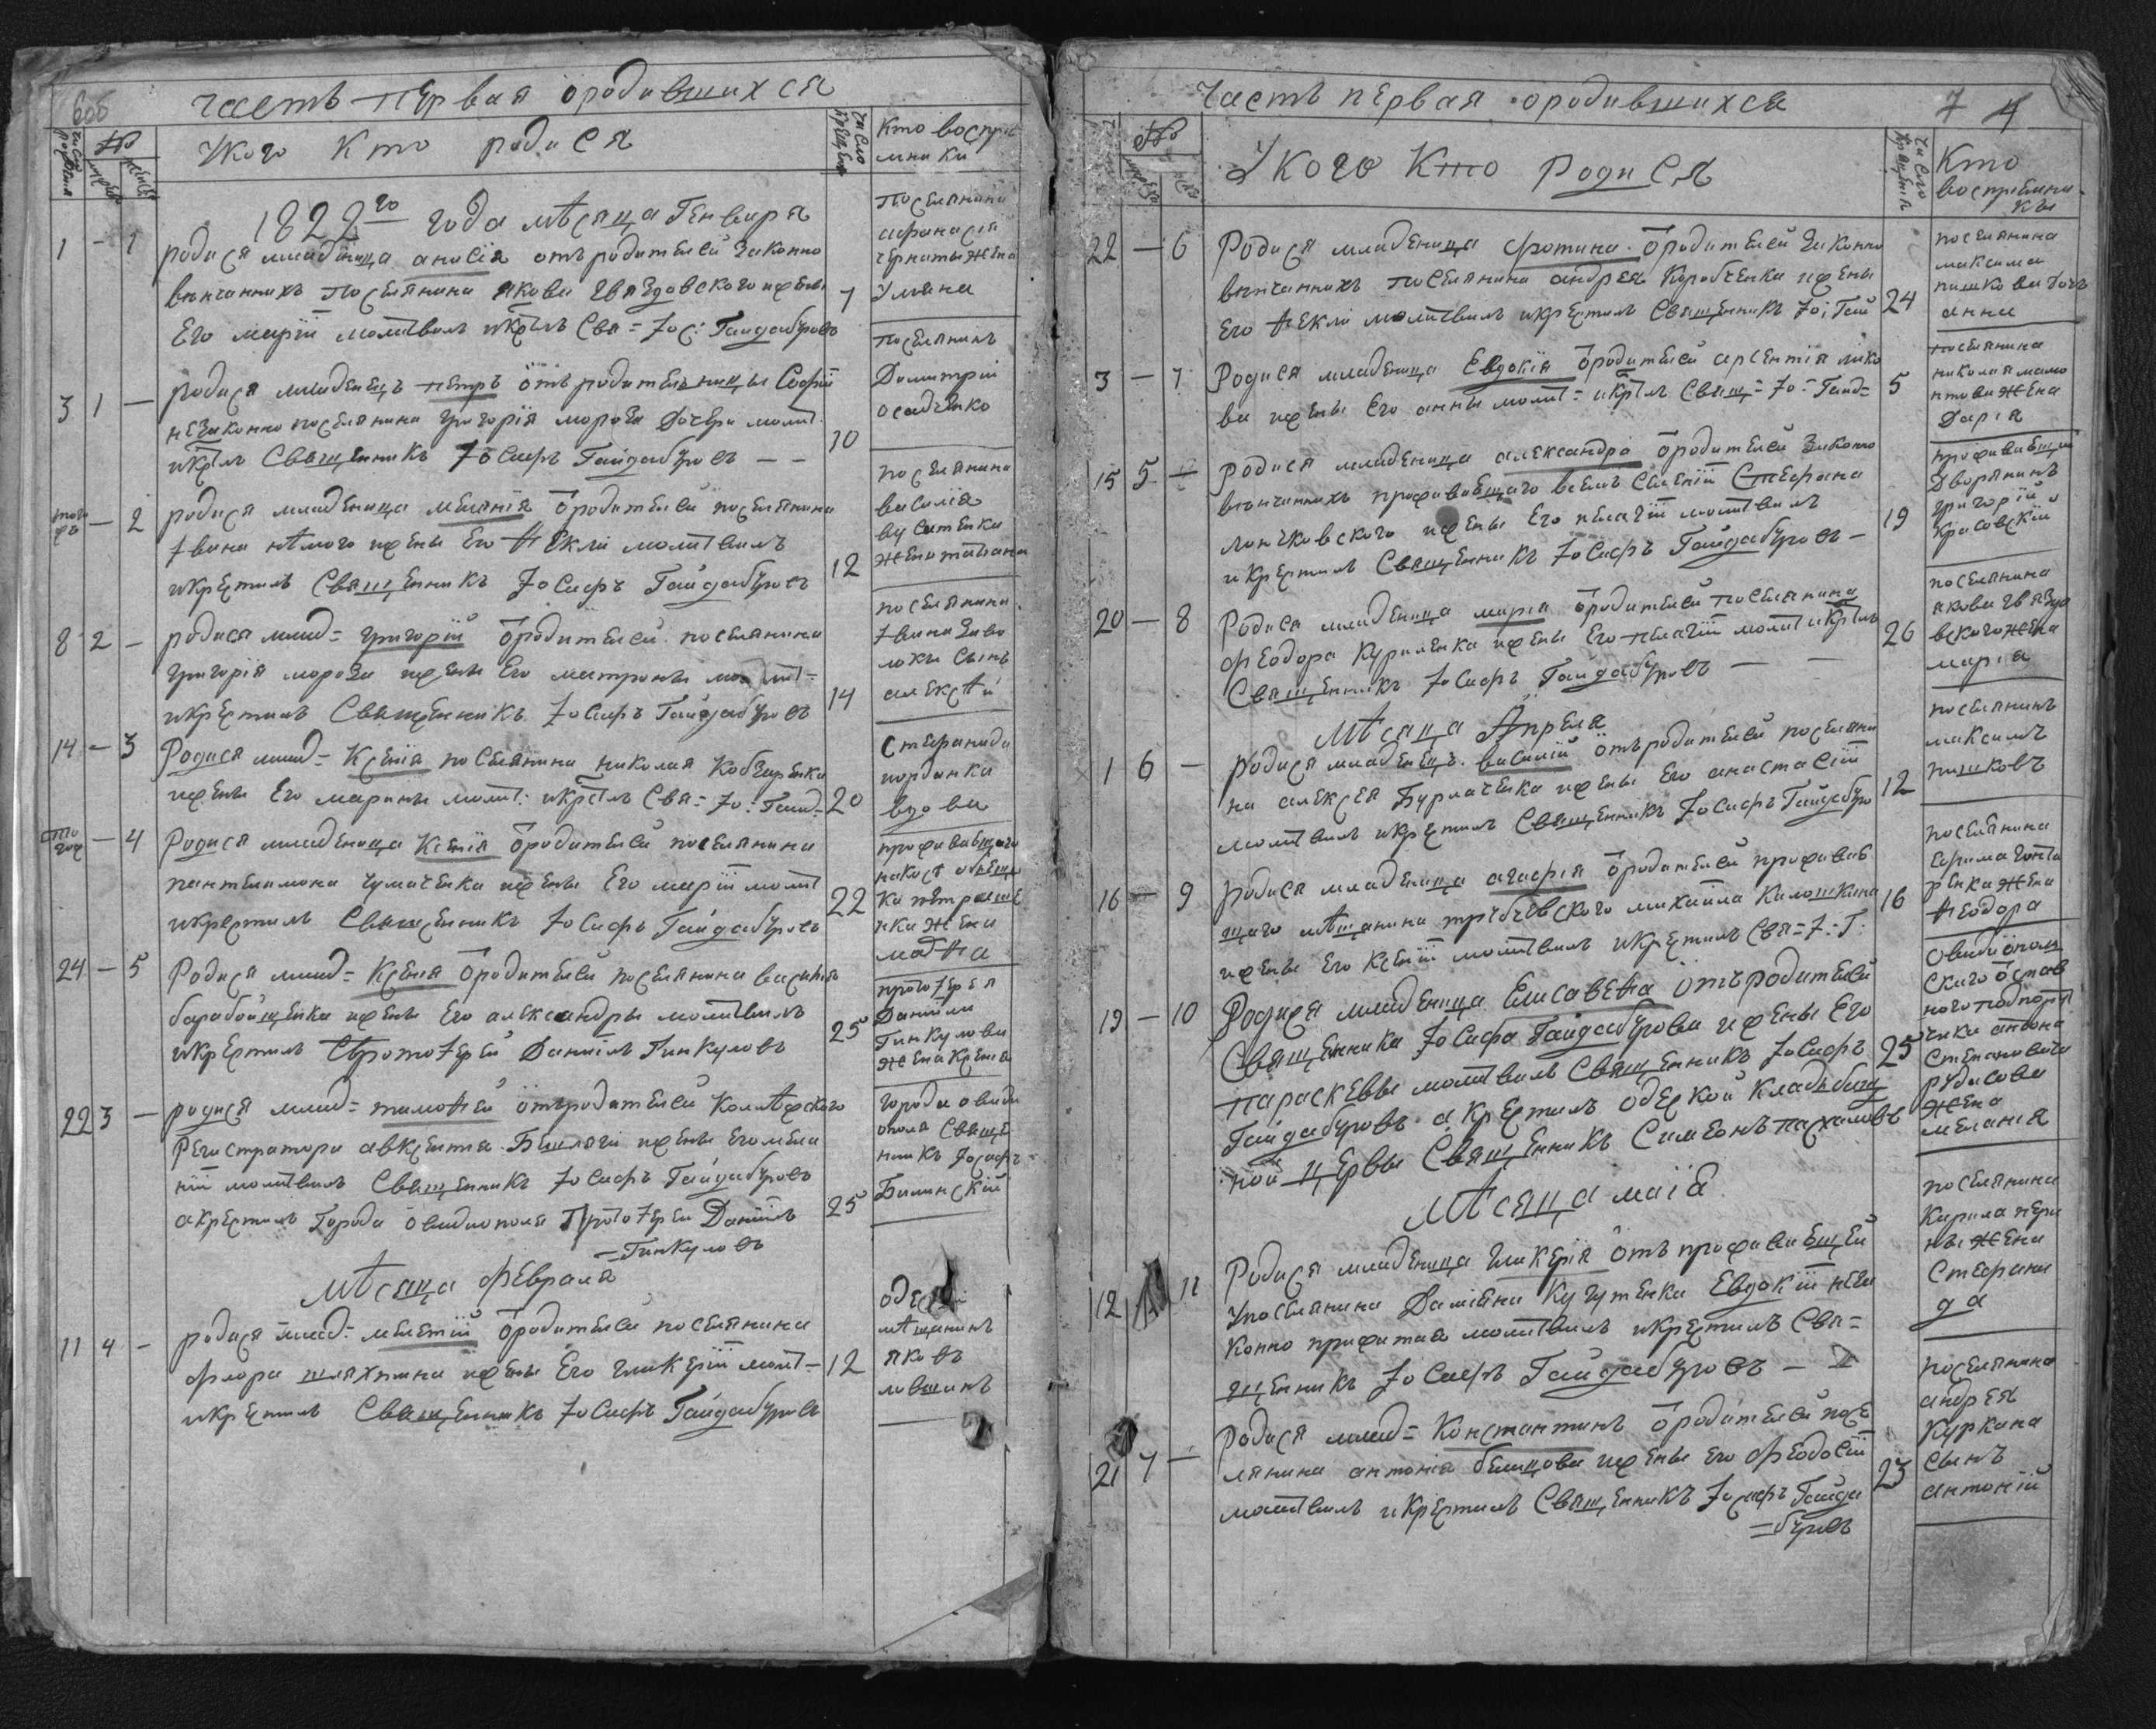 часть первая о родившихся
число рожденія
№
У кого кто родися
число крещенія
кто воспріемники
1822го года мѣсяца Генваря
1 - 1 родися младеница анисія отъ родителей законно
вѣнчанныхъ поселянина якова гвяздовского и жены
Его маріи молитвилъ и крестилъ Свя= Іос: Гайдабуровъ
7
поселянина
афанасія
чернаты жена
Уляна
3 1 — родися младенецъ петръ отъ родительницы Софіи
незаконно поселянина григорія мороза дочери молит
и крестилъ Священникъ Іосифъ Гайдабуровъ — —
10
поселянинъ
Димитрій
осадченко
тогож — 2 родися младеница меланія от родителей поселянина
Івана нѣмого и жены Его Ѳекли молитвилъ
и крестилъ Священникъ Іосифъ Гайдабуровъ
12
поселянина
василія
жена татіана
8 2 — родися млад= григорій от родителей поселянина
григорія мороза и жены Его матроны молит=
и крестилъ Священникъ Іосифъ Гайдабуровъ
14
поселянина
Івана заво
локи сынъ
алексѣй
14 — 3 Родися млад= Ксенія поселянина николая Кобзаренка
и жены Его марины молит: и крестилъ Свя= Іо: Гайд=
20
стефанида
иорданка
вдова
тогож — 4 Родися младеница Ксенія от родителей поселянина
пантелимона чумаченка и жены Его маріи молит
и крестилъ Священникъ Іосифъ Гайдабуровъ
22
проживающаго
нка жена
24 — 5 Родися млад= Ксенія от родителей поселянина василія
барабойщенка и жены Его александры молитвилъ
и крестилъ Протоіерей Даніилъ Гинкуловъ
25
протоіерея
Даніила
Гинкулова
жена Ксенія
22 3 — родися млад= тимоѳей отъ родителей Коллѣжского
Регистратора авксентія Белаги и жены Его мела
ніи молитвилъ Священникъ Іосифъ Гайдабуровъ
а крестилъ города овидиополя Протоіерей Даніилъ
= Гинкуловъ
25
города овиди
ополя Свяще
нникъ Іосифъ
Билинскій
мѣсяца февраля
11 4 - родися млад: мелетій от родителей поселянина
флора шляхтина и жены Его гликеріи молит=
и крестилъ Священникъ Іосифъ Гайдабуровъ
12
мѣщанинъ
яковъ
ловшинъ
часть первая о родившихся
7 4
№
У кого кто родися
число крещенія
Кто
воспріемни
кы
22 — 6 Родися младеница фотина от родителей законно
вѣнчанныхъ поселянина андрея Коробченка и жены
Его Ѳекли молитвилъ и крестилъ Священникъ Іо: Гай
24
поселянина
максима
пашкова дочь
анна
3 — 7 Родися младеница Евдокія от родителей арсентія лико
ва и жены Его анны молит= и крестилъ Свящ= Іо= Гайд=
5
поселянина
николая мамо
нтова жена
Дарія
15 5 — родися младеница александра от родителей законно
вѣнчанныхъ проживающаго в семъ селеніи Стефана
лончковского и жены Его пелагіи молитвилъ
и крестилъ Священникъ Іосифъ Гайдабуровъ —
19
проживающій
Дворянинъ
григорій
Красовскій
20 — 8 Родися младеница марія от родителей поселянина
феодора Куриленка и жены Его пелагіи молит и крестилъ
Священникъ Іосифъ Гайдабуровъ — —
26
поселянина
якова гвяздо
вского жена
марія
мѣсяца Апреля
1 6 — родися младенецъ василій отъ родителей поселяни
на алексея Бурлаченка и жены Его анастасіи
молитвилъ и крестилъ Священникъ Іосифъ Гайдабуро
12
поселянинъ
максимъ
пашковъ
16 — 9 родися младеница агафія от родителей прожива
щаго мѣщанина михайла Калашкина
и жены Его Ксеніи молитвилъ и крестилъ Свя= І: Г:
16
поселянина
Ефима гонта
ренка жена
Ѳеодора
19 — 10 Родися младеница Елисавеѳа отъ родителей
Священника Іосифа Гайдабурова и жены Его
параскевы молитвилъ Священникъ Іосифъ
Гайдабуровъ а крестилъ одеской Кладбищ
ной церквы Священникъ Симеонъ пахаловъ
25
овидіопол
ского отстав
ного подпору
чика антона
Степановича
рудисова
жена
меланія
мѣсяца маія
12 11 Родися младеница гликерія отъ проживающей
у поселянина Даміяна Кучугенка Евдокіи неза
конно прижитая молитвилъ и крестилъ Свя=
щенникъ Іосифъ Гайдабуровъ —
поселянина
Кирила
жена
Стефани
да
21 7 — Родися млад= Константинъ от родителей посе
лянина антонія белецова и жены Его Феодосіи
молитвилъ и крестилъ Священникъ Іосифъ Гайда
=буровъ
23
поселянина
андрея
Куркана
сынъ
антоній